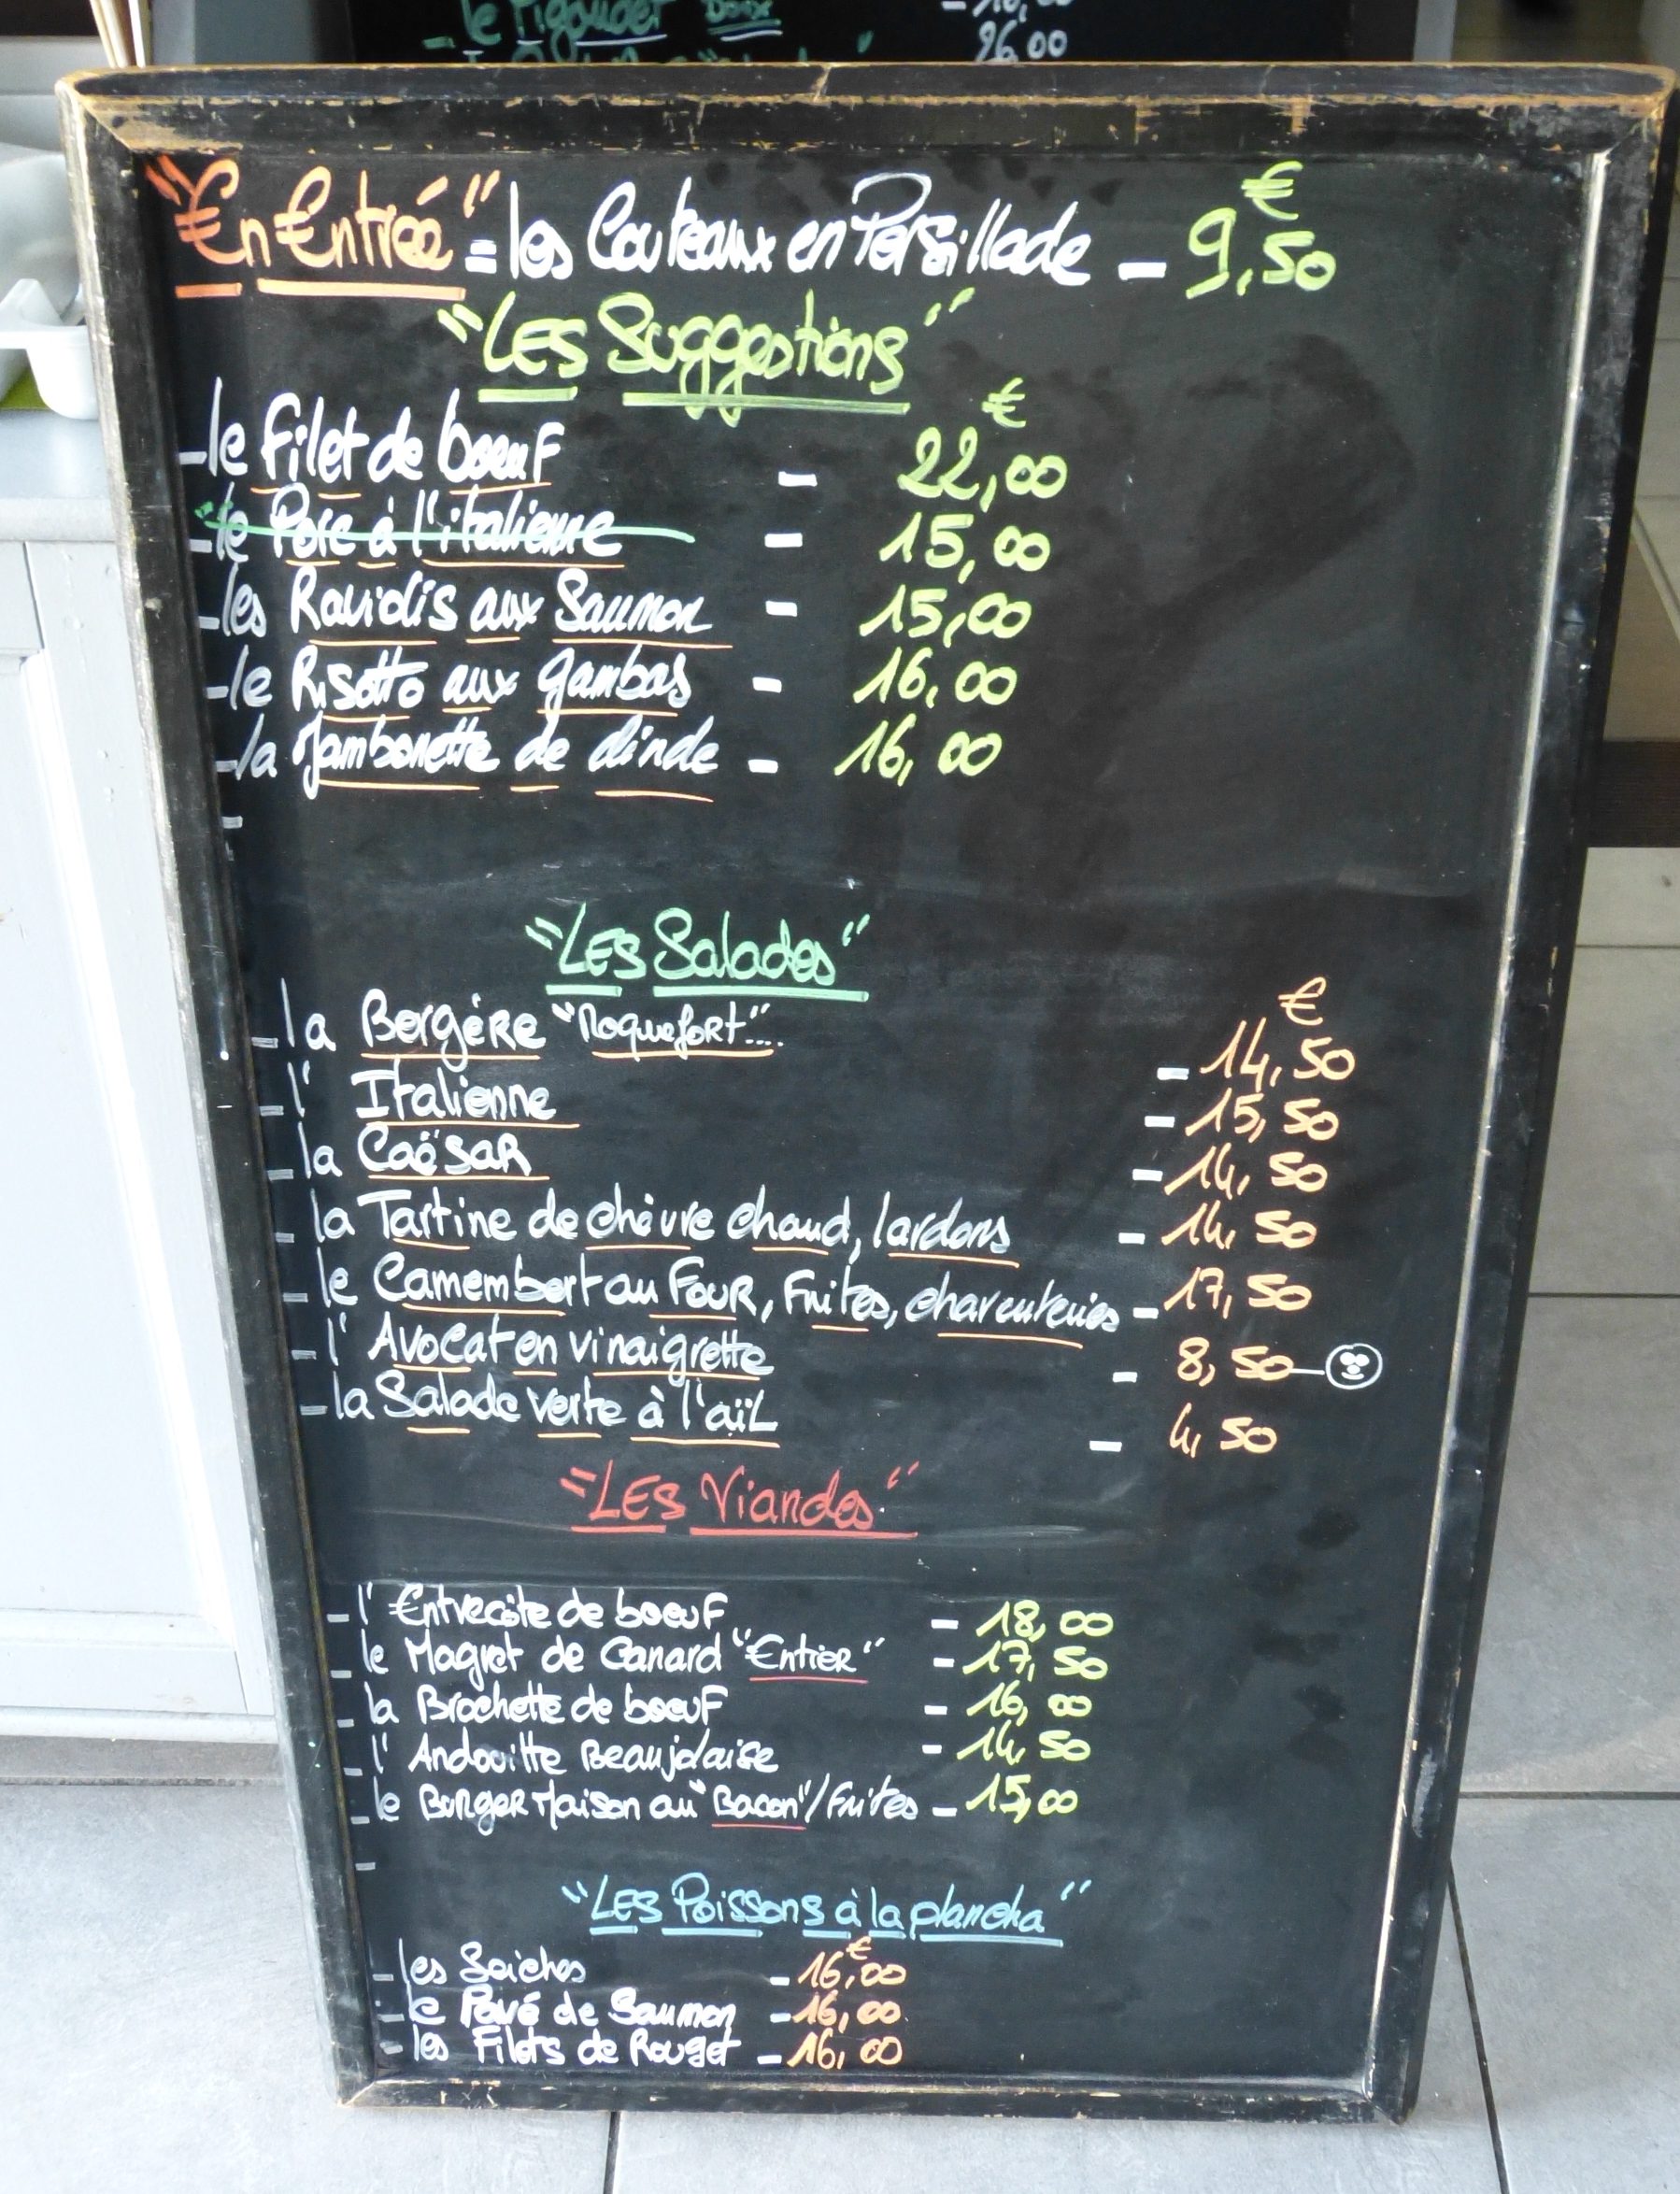 le Pigoudet Doux - 16,00
26,00
"En Entrée" = les Couteaux en Persillade - 9,50 €
"LES Suggestions"
€
- le Filet de boeuf - 22,00
- le Porc à l'italienne - 15,00
- les Raviolis aux Saumon - 15,00
- le Risotto aux gambas - 16,00
- la Jambonette de dinde - 16,00
-
"LES Salades"
€
- la Bergère "Roquefort"... - 14,50
- l' Italienne - 15,50
- la Caësar - 14,50
- la Tartine de chèvre chaud, lardons - 14,50
- le Camembert au Four, Frites, charcuteries - 17,50
- l' Avocat en vinaigrette - 8,50
- la Salade verte à l'aïl - 4,50
"LES Viandes"
- l' Entrecôte de boeuf - 18,00
- le Magret de Canard "Entier" - 17,50
- la Brochette de boeuf - 16,00
- l' Andouille Beaujolaise - 14,50
- le Burger Maison au "Bacon"/Frites - 15,00
-
"LES Poissons à la plancha"
€
- les Seiches - 16,00
- le Pavé de Saumon - 16,00
- les Filets de Rouget - 16,00